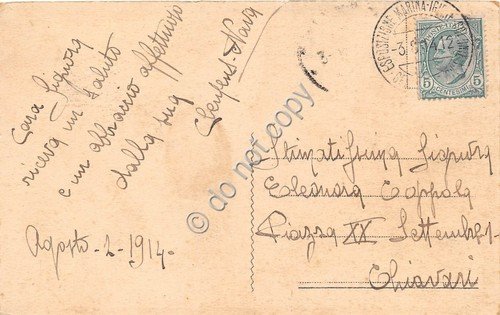 Cara Signora
riceva un saluto
e un abbraccio affettuoso
dalla sua
Agosto - 2 - 1914 -
ESPOSIZIONE MARINA-IGIENE
5 5
CENTESIMI
Stimatissima Signora
Eleonora Coppola
Piazza XX Settembre
Chiavari
© do not copy